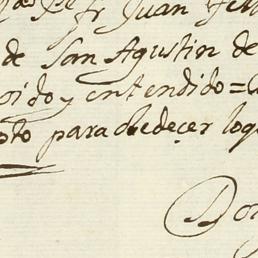 Fr Juan Fel
de San Agustin de
oido y entendido =
pto para obedeçer loq
Do